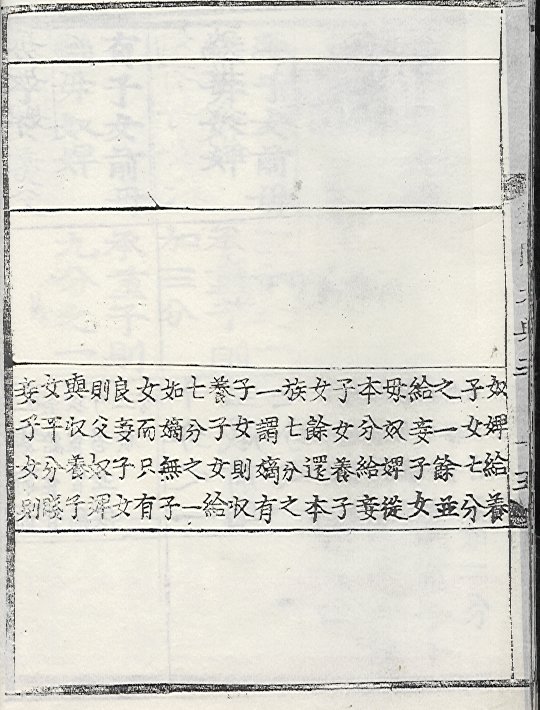 奴婢給養
子女七分
之一餘並
給妾子女
毋奴婢從
本分給妾
子女養子
女餘還本
族七分之
一謂嫡有
子女則収
養子女給
七分之一
如嫡無子
女而只有
良妾子女
則父奴婢
與収養子
女平分賤
妾子女則